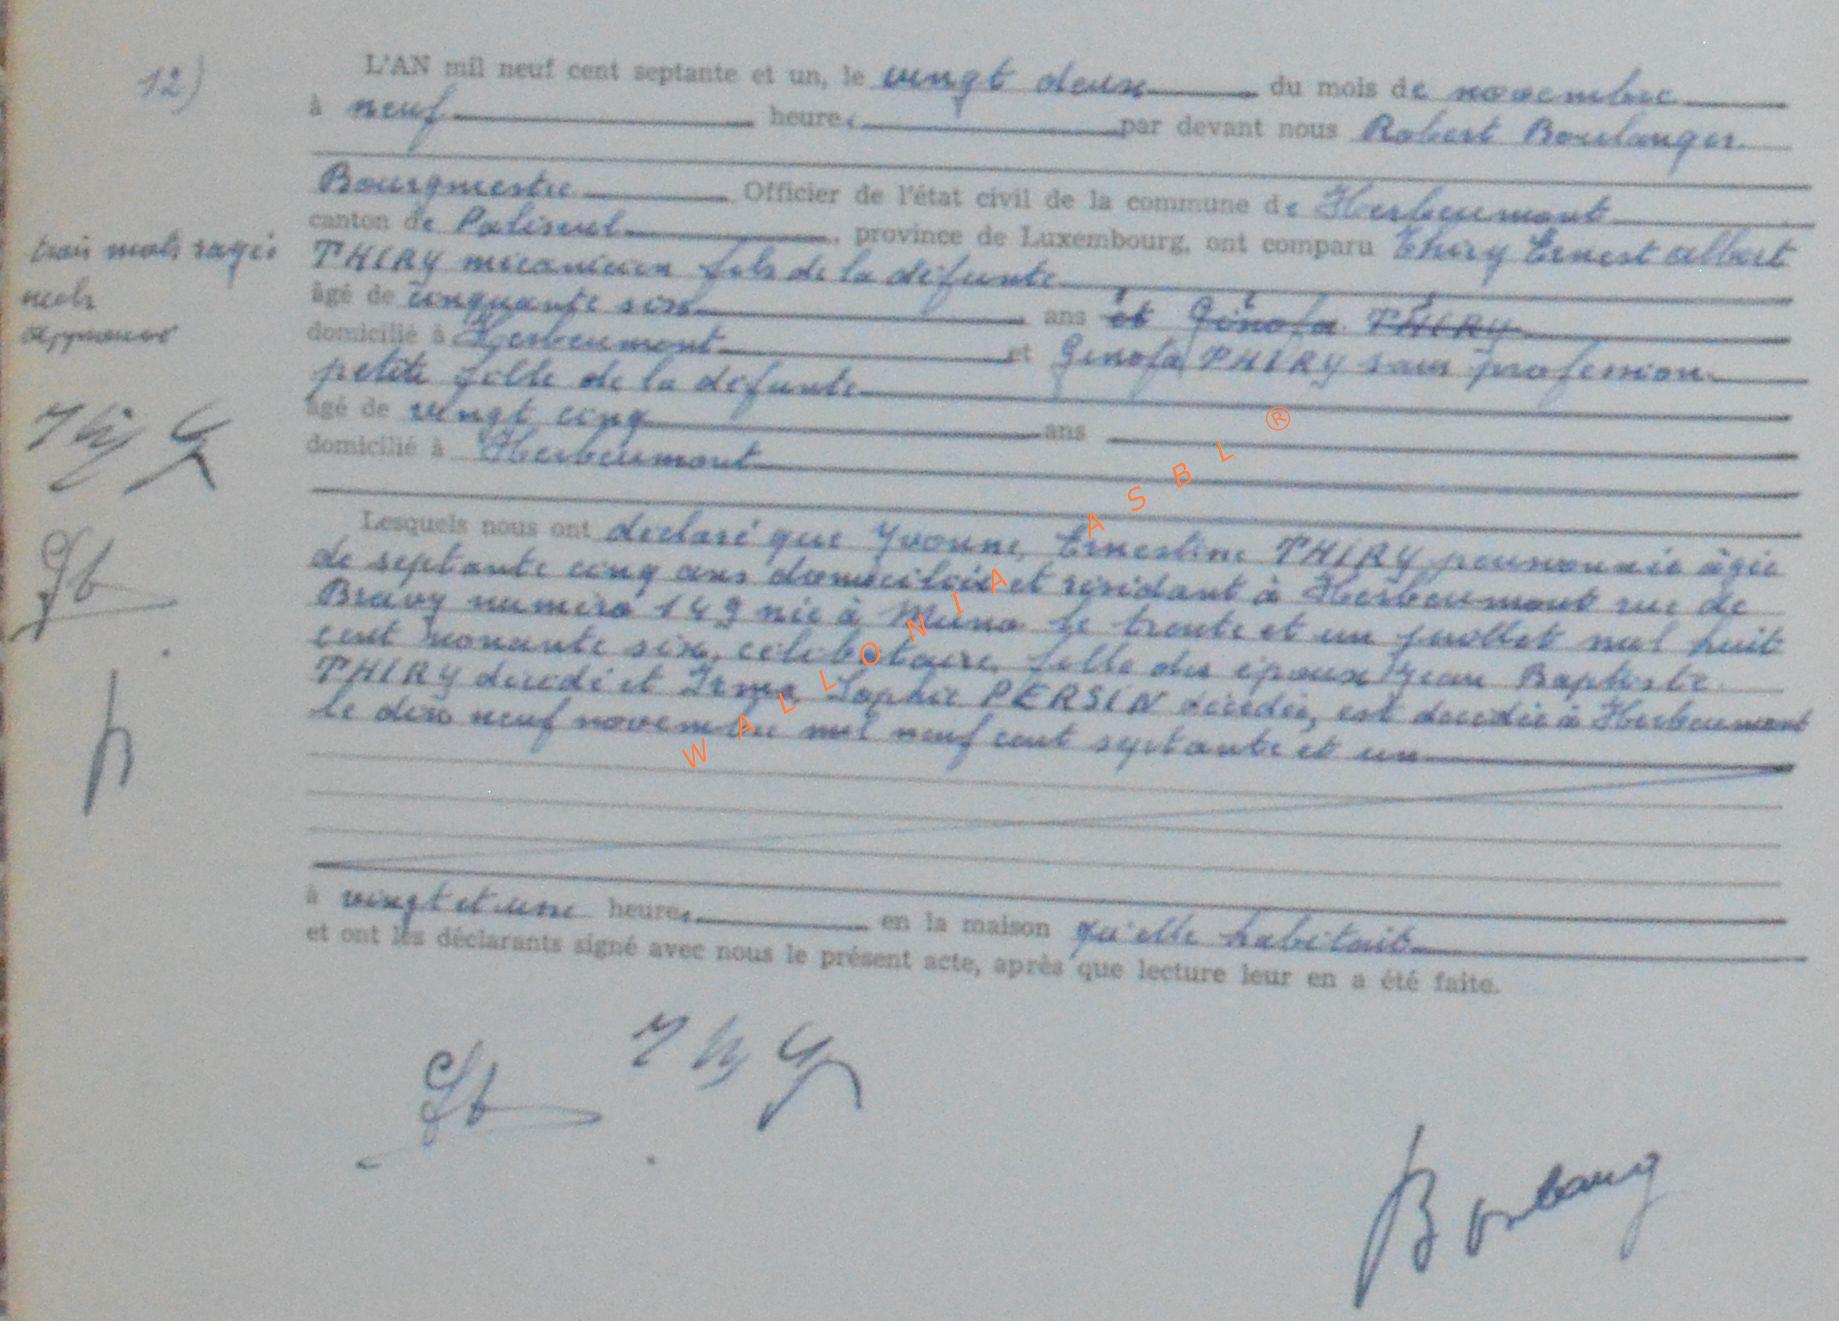 12)
L'AN mil neuf cent septante et un, le vingt deux du mois de novembre
à neuf heures par devant nous Robert Boulanger
Bourgmestre Officier de l'état civil de la commune de Herbeumont
canton de Paliseul, province de Luxembourg, ont comparu Thiry Ernest Albert
THIRY mécanicien fils de la défunte
âgé de cinquante six ans et Ginofa THIRY
domicilié à Herbeumont et Ginofa THIRY sans profession
petite fille de la défunte
âgé de vingt cinq ans
domicilié à Herbeumont
trois mots rayés
nuls
approuvé
Lesquels nous ont déclaré que Yvonne, Ernestine THIRY pensionnée âgée
de septante cinq ans domiciliée et résidant à Herbeumont rue de
Bravy numéro 149 née à Muno le trente et un juillet mil huit
cent nonante six, célibataire, fille des époux Jean Baptiste
THIRY décédé et Irma, Sophie PERSIN décédée, est décédée à Herbeumont
le dix neuf novembre mil neuf cent septante et un
à vingt et une heures en la maison qu'elle habitait
et ont les déclarants signé avec nous le présent acte, après que lecture leur en a été faite.
WALLONIA ASBL ®